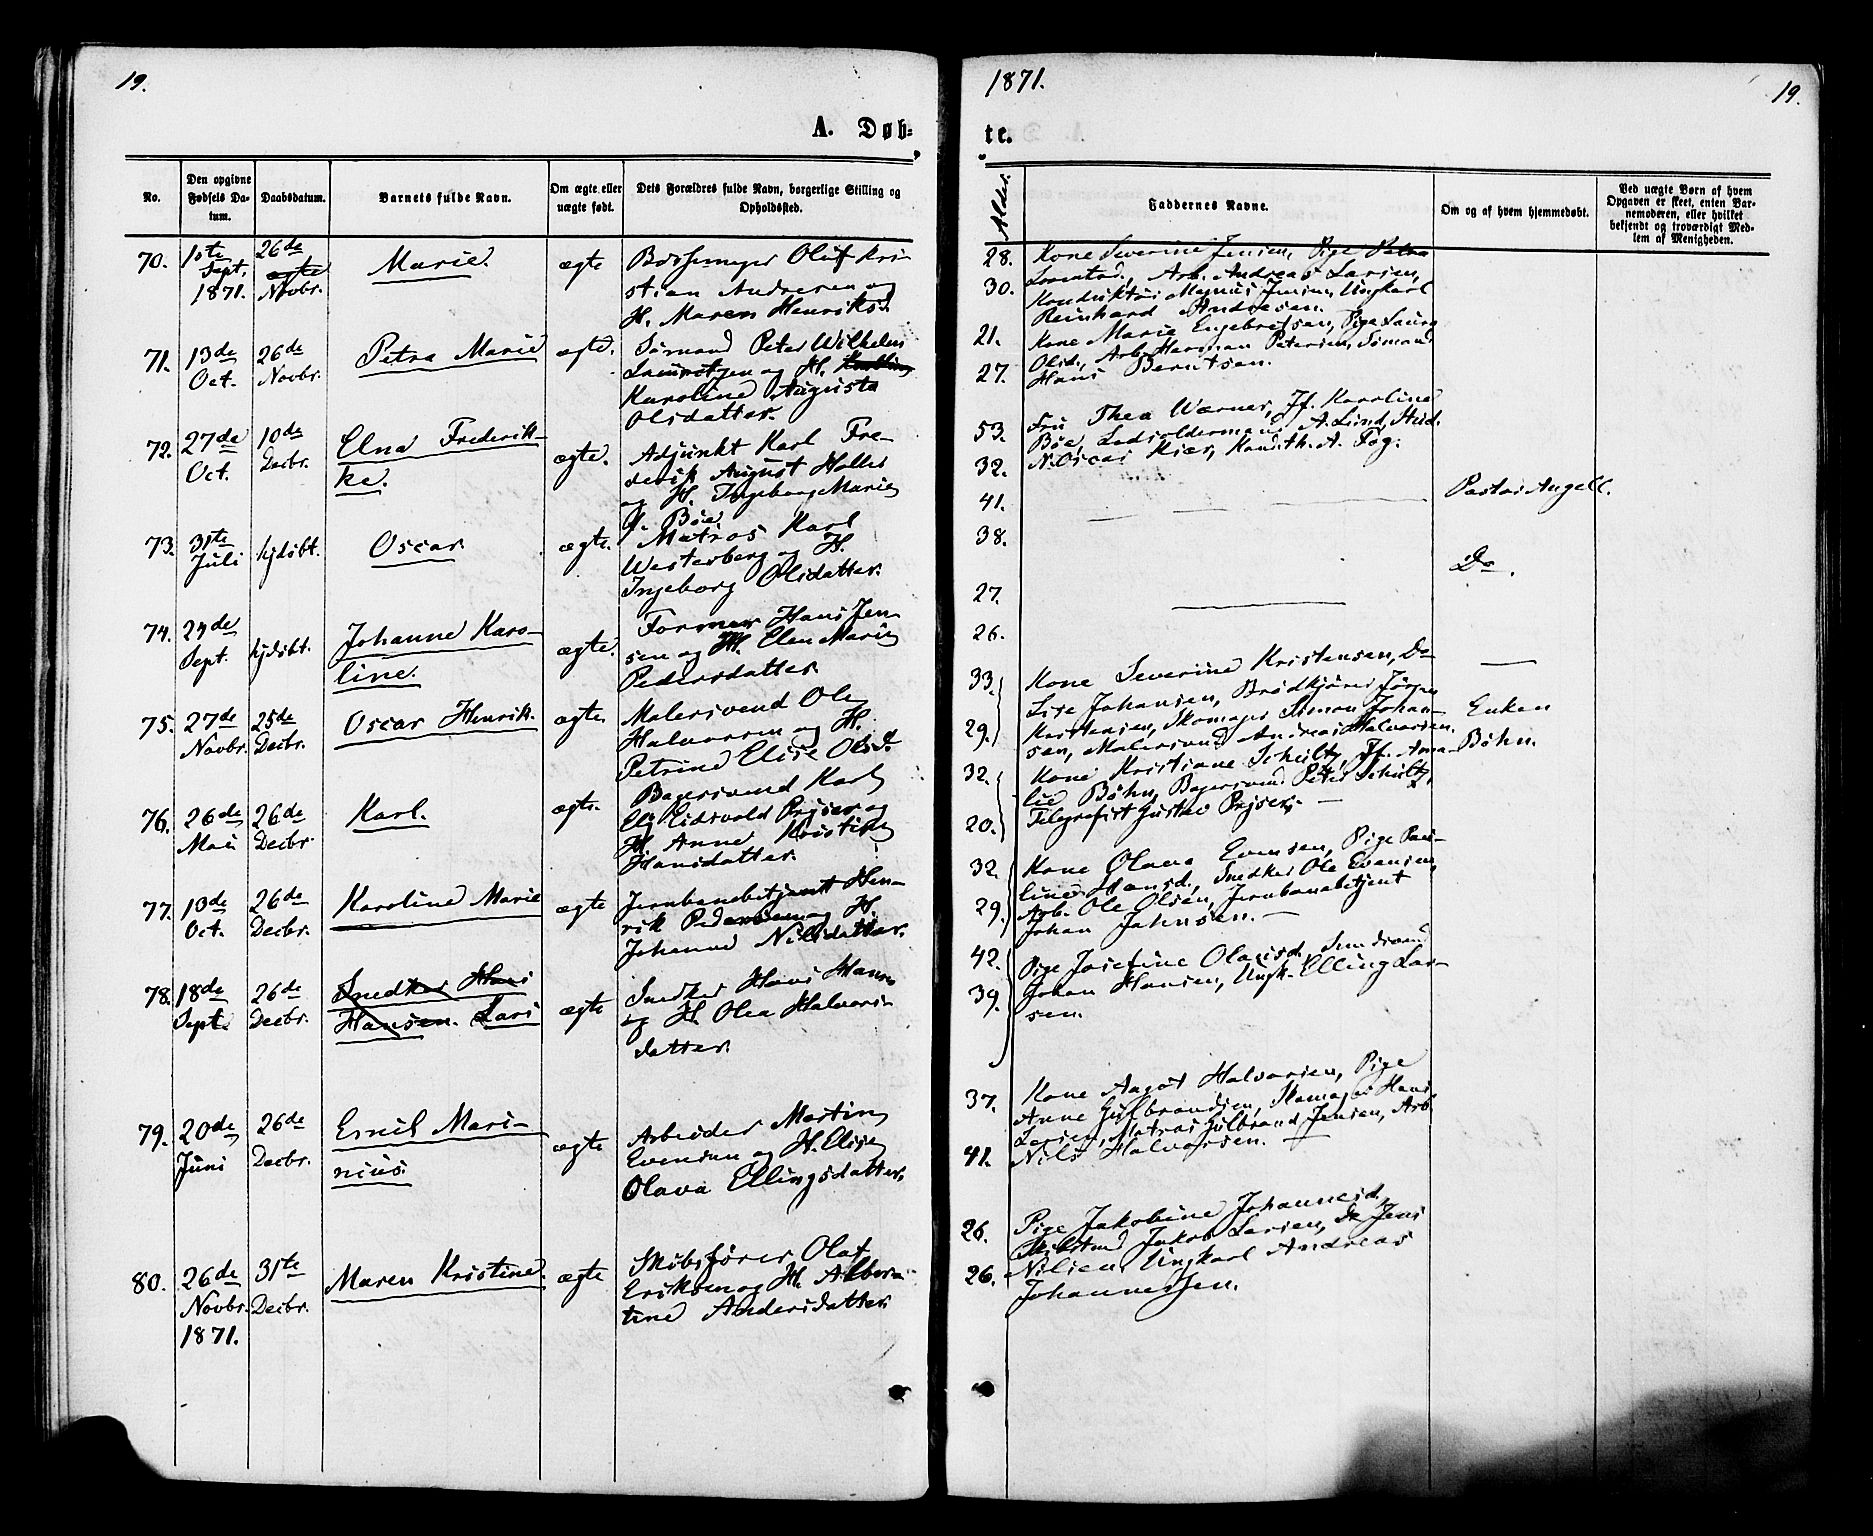 19.
A. Døb-
No.
Den opgivne
Fødsels Da-
tum.
Daabsdatum.
Barnets fulde Navn.
Om ægte eller
uægte født.
Dets Forældres fulde Navn, borgerlige Stilling og
Opholdssted.
70.
1ste
Sept.
1871.
26de
ægte
Novbr.
Marie.
ægte
Oluf Kri-
stian Andresen og
H. Maren Henriksd.
71.
13de
Oct.
26de
Novbr.
Petra Marie
ægte.
Sømand Peter Wilhelm
og H.
Karoline Augusta
Olsdatter.
72.
27de
Oct.
10de
Decbr.
Elna Frederik-
ke.
ægte.
Adjunkt Karl Fre-
derik August Holler
og H. Ingeborg Marie
Böe.
73.
31te
Juli
hjdøbt.
Oscar
ægte.
Matros Karl
Westerberg og H.
Ingeborg Olsdatter.
74.
24de
Sept.
hjdøbt.
Johanne Karo-
line.
ægte.
Former Hans Jen-
sen og H. Elen Marie
Pedersdatter.
75.
27de
Novbr.
25de
Decbr.
Oscar Henrik.
ægte.
Malersvend Ole
Halvorsen og H.
Petrine Elise Olsd.
76.
26de
Mai
26de
Decbr.
Karl.
ægte.
Bagersvend Karl
Eidsvold Prÿser og
H. Anne Kristine
Hansdatter.
77.
10de
Oct.
26de
Decbr.
Karoline Marie
ægte
Jernbanebetjent Hen-
rik Pedersen og H.
Johanne Nilsdatter.
78.
18de
Sept.
26de
Decbr.
Snedker Hans
Hansen. Lars
ægte
Snedker Hans Hansen
og H. Olea Halvors-
datter.
79.
20de
Juni
26de
Decbr.
Emil Mari-
nius.
ægte
Arbeider Martin
Evensen og H. Elise
Olava Ellingsdatter.
80.
26de
Novbr.
1871.
31te
Decbr.
Maren Kristine.
ægte
Skibsfører Olaf
Eriksen og H. Alber-
tine Andersdatter.
1871.
19.
te.
Alder.
Faddernes Navne.
Om og af hvem hjemmedøbt.
Ved uægte Børn af hvem
Opgaven er skeet, enten Bar-
nemoderen, eller hvilket
bekjendt og troværdigt Med-
lem af Menigheden.
28.
30.
Kone Severine Jensen, Pige Petra
Arb. Andreas Larsen,
Konduktør Magnus Jensen, Ungkarl
Reinhard Andresen.
21.
27.
Kone Marie Engebretsen, Pige Laura
Olsd., Arb. Herman Petersen, Sömand
Hans Berntsen.
53.
32.
Fru Thea Wærner, Jf. Karoline
Böe, A. Lund, Stud.
N. Oscar Kiær, Kand. th. A. Fog.
41.
38.
Pastor Angell.
27.
26.
Do.
33.
29.
Kone Severine Kristensen, Do
Lise Johansen, Brødkjører Jörgen
Kristensen, Skomager Simon Johan-
sen, Malersvend Andreas Halvorsen.
32.
20.
Kone Kristiane Schultz, Jf. Ama-
lie Böhn, Bagersvend Peter Schultz,
Telegrafist Gustav Prÿser.
Enken
Böhn.
32.
29.
Kone Olava Evensen, Pige Pau-
line Hansd., Snedker Ole Evensen,
Arb. Ole Olsen, Jernbanebetjent
Johan Johnsen.
42.
39.
Pige Josefine Olavisd.,
Johan Hansen, Ungk. Elling Lar-
sen.
37.
41.
Kone Aagot Halvorsen, Pige
Anne Gulbrandsen, Skomager Hans
Larsen, Matros Gulbrand Jensen, Arb.
Nils Halvorsen.
26.
26.
Pige Jakobine Johannesd.,
Jakob Larsen, Do Jens
Nilsen, Ungkarl Andreas
Johannessen.